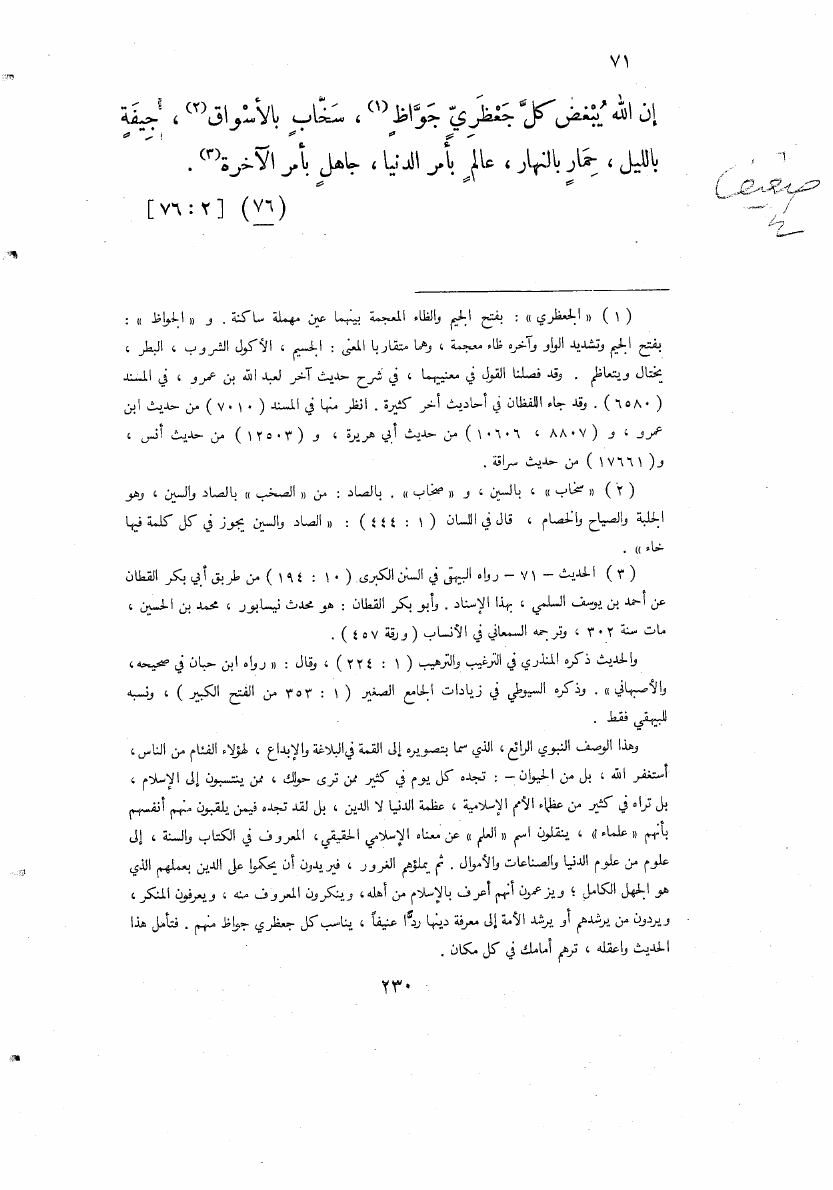 ٧١
إن الله يُبْغض كلَّ جَعْظَرِيٍّ جَوَّاظٍ(١) ، سَخَّابٍ بالأسْواق(٢) ، جِيفَةٍ
بالليل ، حِمَارٍ بالنهار ، عالمٍ بأمر الدنيا ، جاهلٍ بأمر الآخرة(٣) .
(٧٦) [٢ : ٧٦]
ضعيف
(١) «الجعظري» : بفتح الجيم والظاء المعجمة بينهما عين مهملة ساكنة . و «الجواظ» :
بفتح الجيم وتشديد الواو وآخره ظاء معجمة ، وهما متقاربا المعنى : الجسيم ، الأكول الشروب ، البطر ،
يختال ويتعاظم . وقد فصلنا القول في معنييهما ، في شرح حديث آخر لعبد الله بن عمرو ، في المسند
(٦٥٨٠) . وقد جاء اللفظان في أحاديث أخر كثيرة . انظر منها في المسند (٧٠١٠) من حديث ابن
عمرو ، و (٨٨٠٧ ، ١٠٦٠٦) من حديث أبي هريرة ، و (١٢٥٠٣) من حديث أنس ،
و(١٧٦٦١) من حديث سراقة .
(٢) «سخاب» ، بالسين ، و «صخاب» . بالصاد : من «الصخب» بالصاد والسين ، وهو
الجلبة والصياح والخصام ، قال في اللسان (١ : ٤٤٤) : «الصاد والسين يجوز في كل كلمة فيها
خاء» .
(٣) الحديث – ٧١ – رواه البيهقي في السنن الكبرى (١٠ : ١٩٤) من طريق أبي بكر القطان
عن أحمد بن يوسف السلمي ، بهذا الإسناد . وأبو بكر القطان : هو محدث نيسابور ، محمد بن الحسين ،
مات سنة ٣٠٢ ، وترجمه السمعاني في الأنساب (ورقة ٤٥٧) .
والحديث ذكره المنذري في الترغيب والترهيب (١ : ٢٢٤) ، وقال : «رواه ابن حبان في صحيحه ،
والأصبهاني» . وذكره السيوطي في زيادات الجامع الصغير (١ : ٣٥٣ من الفتح الكبير) ، ونسبه
للبيهقي فقط .
وهذا الوصف النبوي الرائع ، الذي سما بتصويره إلى القمة في البلاغة والإبداع ، لهؤلاء الفئام من الناس ،
أستغفر الله ، بل من الحيوان – : تجده كل يوم في كثير ممن ترى حولك ، ممن ينتسبون إلى الإسلام ،
بل تراه في كثير من عظماء الأمم الإسلامية ، عظمة الدنيا لا الدين ، بل لقد تجده فيمن يلقبون منهم أنفسهم
بأنهم «علماء» ، ينقلون اسم «العلم» عن معناه الإسلامي الحقيقي ، المعروف في الكتاب والسنة ، إلى
علوم من علوم الدنيا والصناعات والأموال . ثم يملؤهم الغرور ، فيريدون أن يحكموا على الدين بعملهم الذي
هو الجهل الكامل ؛ ويزعمون أنهم أعرف بالإسلام من أهله ، وينكرون المعروف منه ، ويعرفون المنكر ،
ويردون من يرشدهم أو يرشد الأمة إلى معرفة دينها ردًّا عنيفاً ، يناسب كل جعظري جواظ منهم . فتأمل هذا
الحديث واعقله ، ترهم أمامك في كل مكان .
٢٣٠